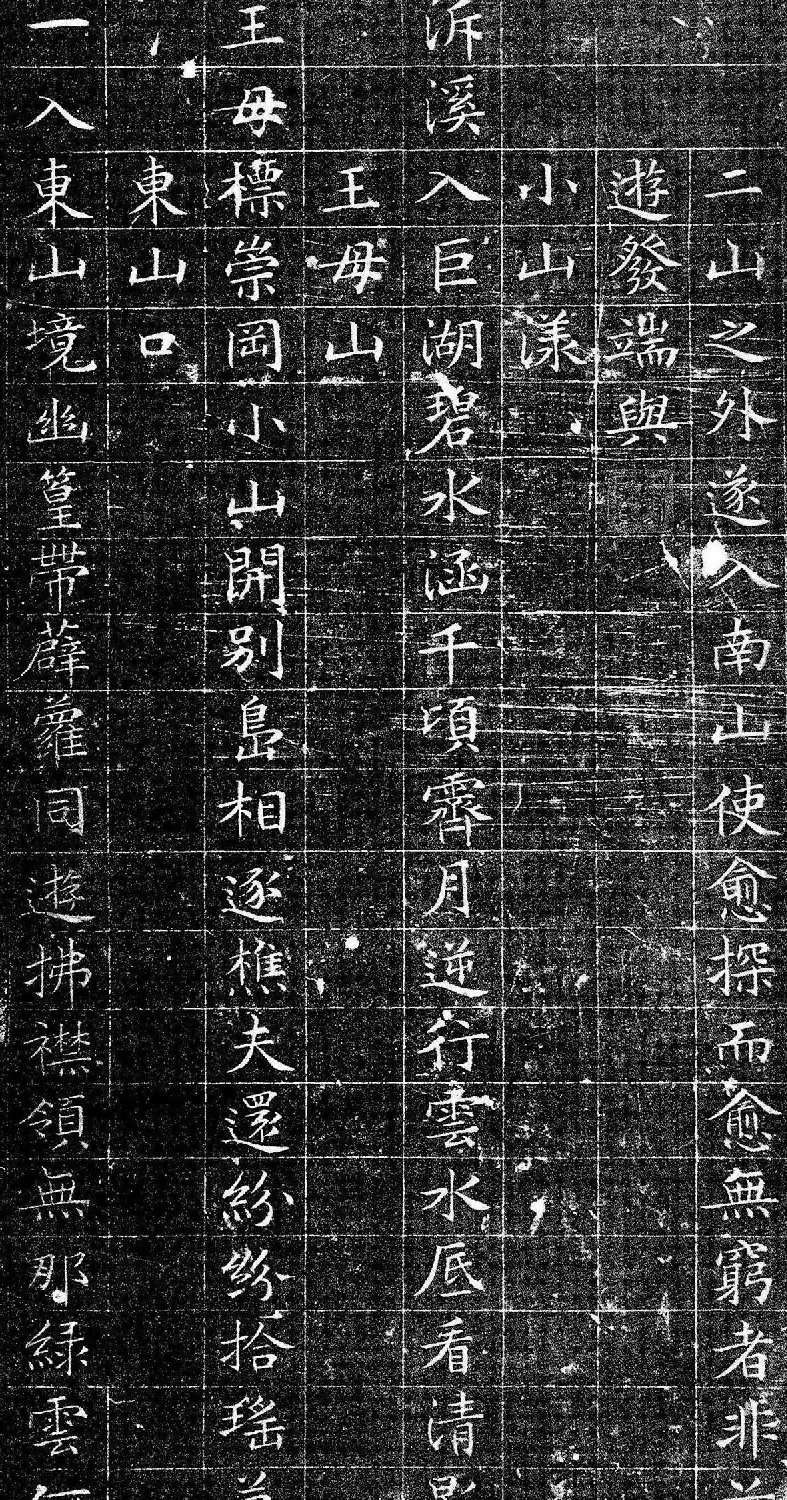 二山之外遂入南山使愈探而愈無窮者非
遊發端與
小山漾
泝溪入巨湖碧水涵千頃霽月逆行雲水底看清影
王毋山
王毋標崇岡小山開別島相逐樵夫還紛紛拾瑤草
東山口
一入東山境幽篁帶薜蘿同遊拂襟領無那綠雲何